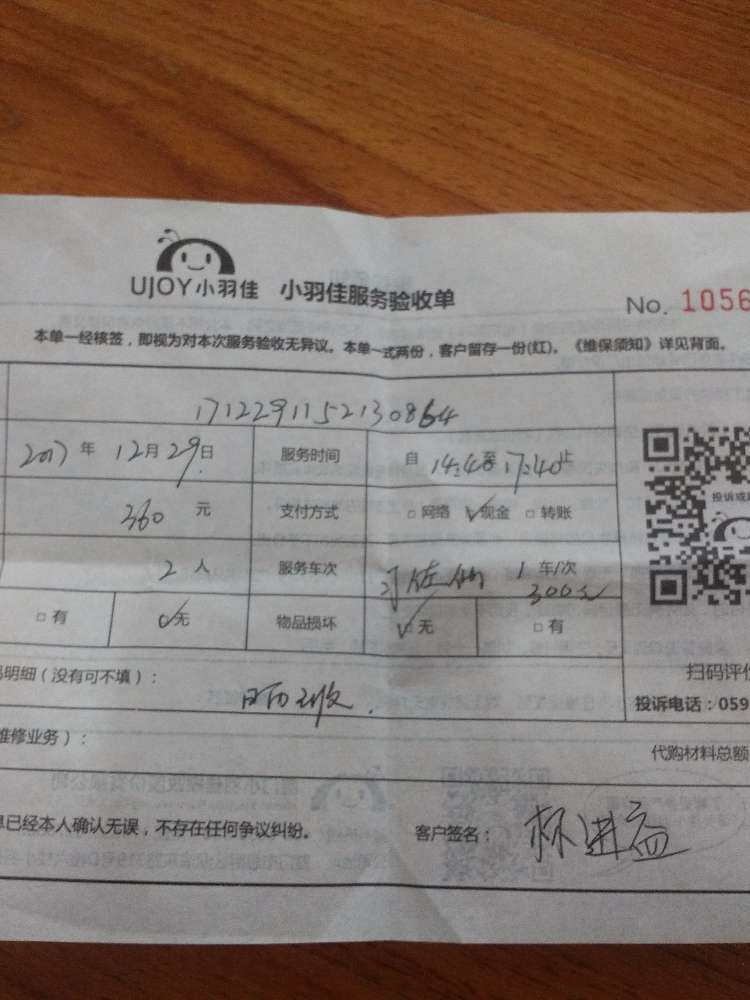 UJOY小羽佳 小羽佳服务验收单
No. 1056
本单一经核签，即视为对本次服务验收无异议。本单一式两份，客户留存一份(红)。《维保须知》详见背面。
1712291152130864
2017年 12月29日 服务时间 自 14:40至17:40止
360 元 支付方式 □网络 ☑现金 □转账
投诉或
2 人 服务车次 1 车/次
300元
□有 ☑无 物品损坏 ☑无 □有
明细（没有可不填）：
扫码评
投诉电话：059
维修业务）：
代购材料总额
单已经本人确认无误，不存在任何争议纠纷。 客户签名： 林进益